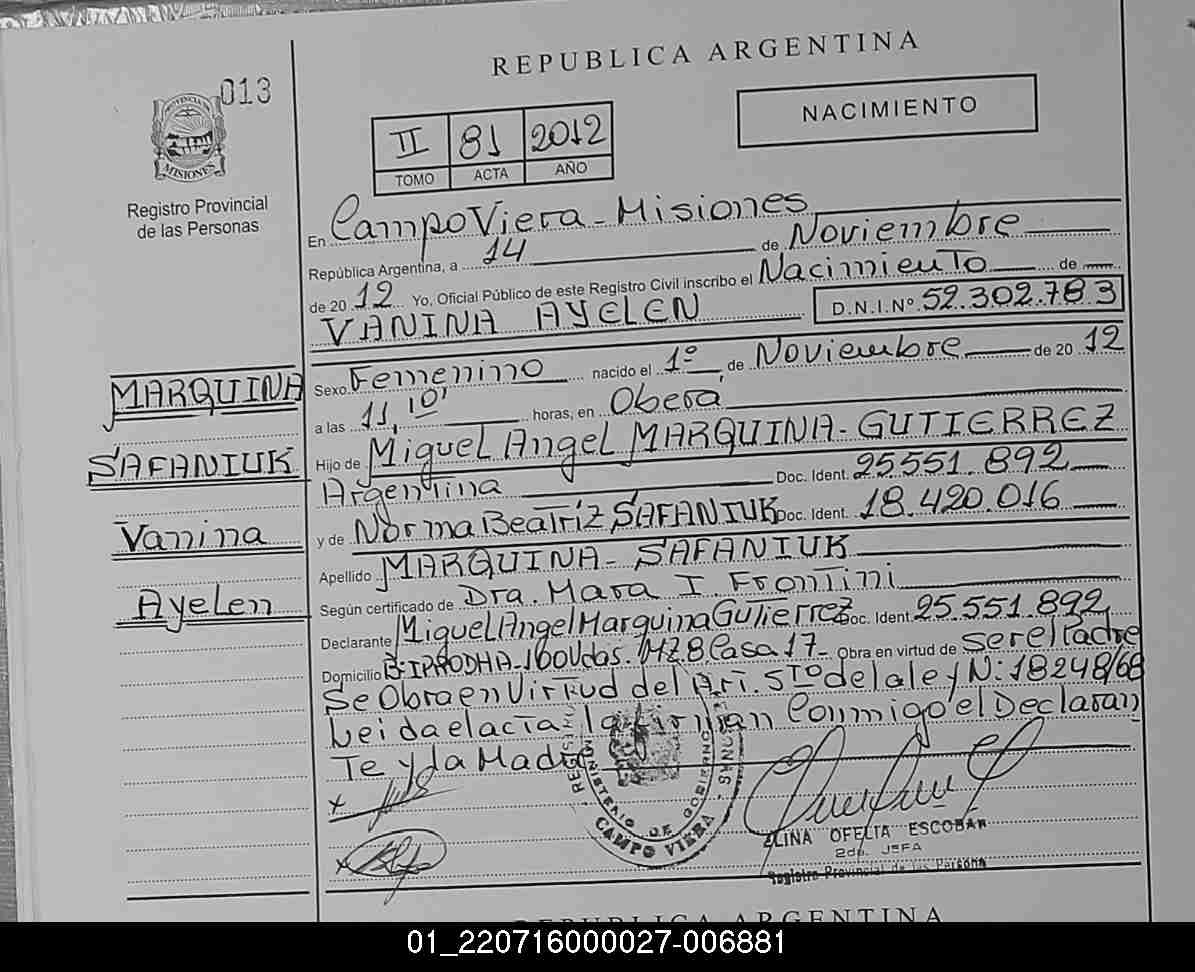 REPUBLICA ARGENTINA
013
NACIMIENTO
PROVINCIA DE
MISIONES
II 81 2012
TOMO ACTA AÑO
Registro Provincial
de las Personas
En Campo Viera - Misiones
República Argentina, a 14 de Noviembre
de 20 12 Yo, Oficial Público de este Registro Civil inscribo el Nacimiento de
VANINA AYELEN D.N.I.Nº 52.302.783
Sexo Femenino nacido el 1º de Noviembre de 20 12
MARQUINA
a las 11,10' horas, en Obera
SAFANIUK
Hijo de Miguel Angel MARQUINA-GUTIERREZ
Argentina Doc. Ident. 25551.892
Vanina
y de Norma Beatriz SAFANIUK Doc. Ident. 18.420.016
Apellido MARQUINA-SAFANIUK
Ayelen
Según certificado de Dra. Mara I. Frontini
Declarante Miguel Angel Marquina Gutierrez Doc. Ident. 25.551.892
Domicilio B: IPRODHA-160Vdas. MZ 8 Casa 17- Obra en virtud de ser el Padre
Se Obra en Virtud del Art. 5to de la ley N: 18248/68
Leida el acta la firman Conmigo el Declaran
Te y la Madre
MINISTERIO DE GOBIERNO
CAMPO VIERA
ELINA OFELIA ESCOBAR
2da. JEFA
Registro Provincial de las Persona
REPUBLICA ARGENTINA
01_220716000027-006881